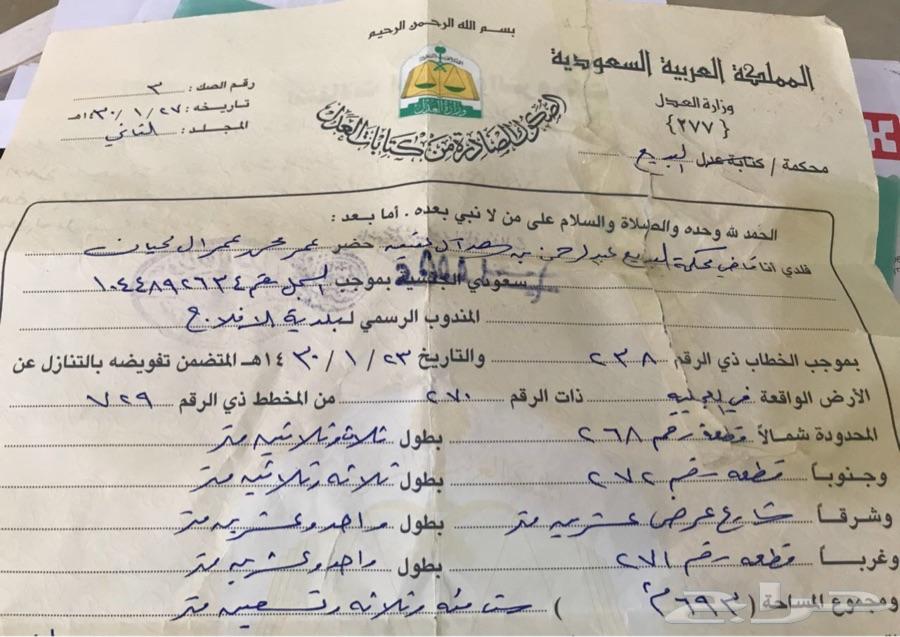 بسم الله الرحمن الرحيم
المملكة العربية السعودية
وزارة العدل
{٢٧٧}
محكمة / كتابة عدل البديع
رقم الصك : ٣
تاريخه : ٢٧ / ١ / ١٤٣٠هـ
المجلد : الثاني
وزارة العدل
الصكوك الصادرة من كتابات العدل
الحمد لله وحده والصلاة والسلام على من لا نبي بعده . أما بعد :
فلدي أنا قاضي محكمة البديع عبدالرحمن بن سعد آل حضر عمر محمد عمر ال
سعودي الجنسية بموجب السجل رقم ١٠٤٤٨٩٢٦٣٤
المندوب الرسمي لبلدية الافلاج
بموجب الخطاب ذي الرقم ٢٣٨ والتاريخ ٢٣ / ١ / ١٤٣٠هـ المتضمن تفويضه بالتنازل عن
الأرض الواقعة في ذات الرقم ٢٧٠ من المخطط ذي الرقم ٧٢٩
المحدودة شمالاً قطعة رقم ٢٦٨ بطول ثلاثة وثلاثين متر
وجنوباً قطعه رقم ٢٧٢ بطول ثلاثه وثلاثين متر
وشرقاً شارع عرض عشرين متر بطول واحد وعشرين متر
وغرباً قطعه رقم ٢٧١ بطول واحد وعشرين متر
ومجموع المساحة ( ٦٩٣م٢ ) ستمئه وثلاثه وتسعين متر
حراج